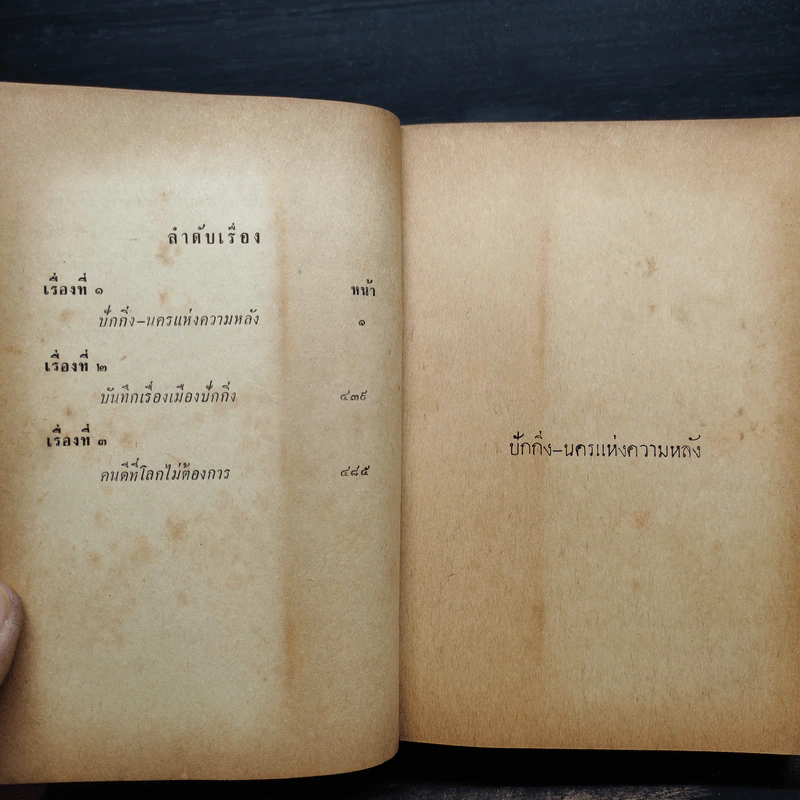 ลำดับเรื่อง
เรื่องที่ ๑ หน้า
ปักกิ่ง–นครแห่งความหลัง ๑
เรื่องที่ ๒
บันทึกเรื่องเมืองปักกิ่ง ๔๓๙
เรื่องที่ ๓
คนดีที่โลกไม่ต้องการ ๔๘๕
ปักกิ่ง–นครแห่งความหลัง